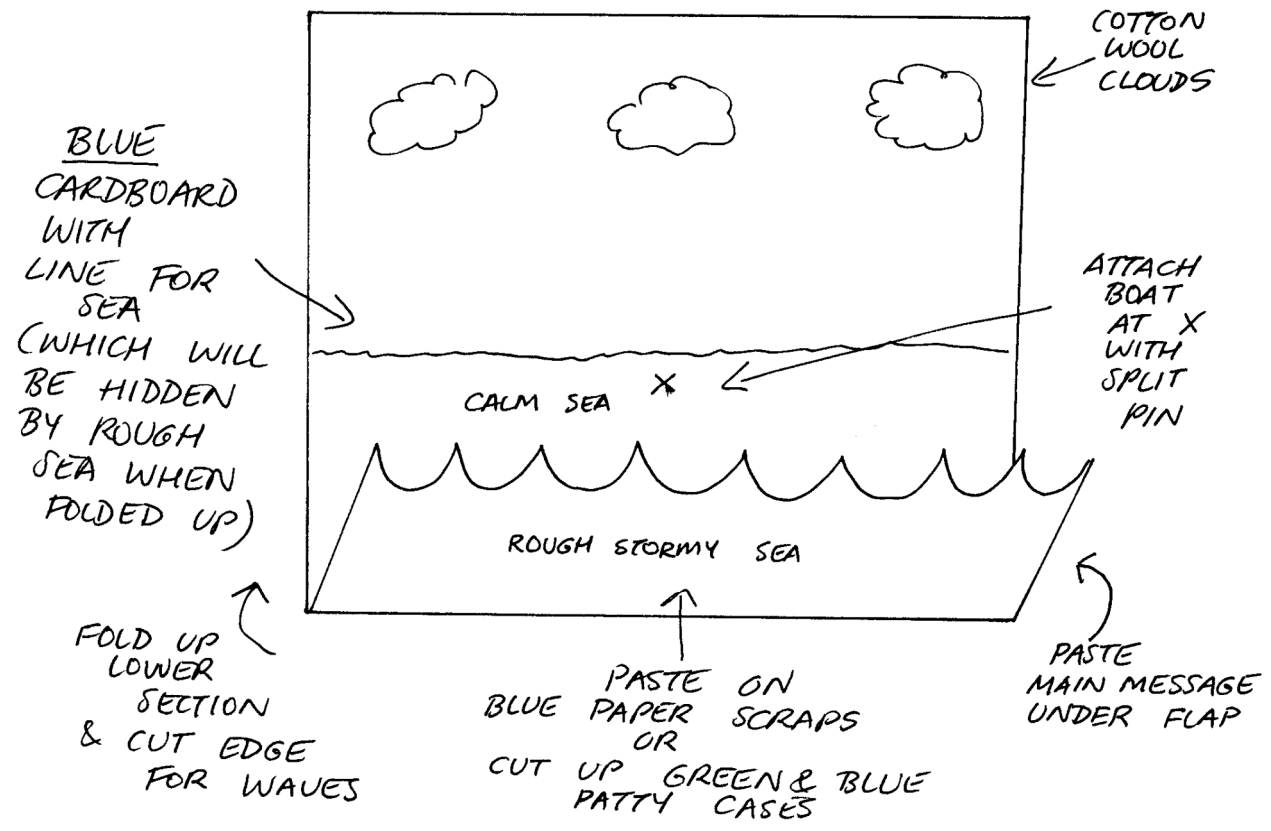 COTTON
WOOL
CLOUDS
BLUE
CARDBOARD
WITH
LINE FOR
SEA
(WHICH WILL
BE HIDDEN
BY ROUGH
SEA WHEN
FOLDED UP)
ATTACH
BOAT
AT X
WITH
SPLIT
PIN
CALM SEA X
ROUGH STORMY SEA
FOLD UP
LOWER
SECTION
& CUT EDGE
FOR WAVES
PASTE ON
BLUE PAPER SCRAPS
OR
CUT UP GREEN & BLUE
PATTY CASES
PASTE
MAIN MESSAGE
UNDER FLAP